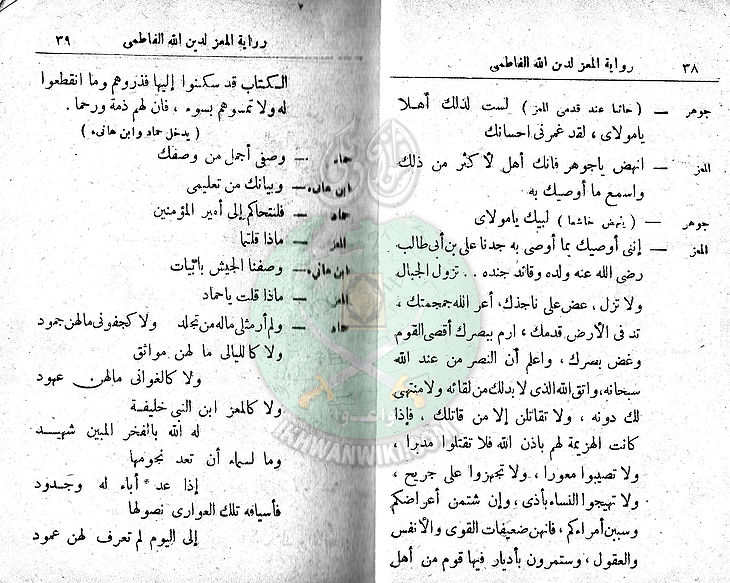 ٣٨ رواية المعز لدين الله الفاطمى
جوهر — ( جاثيا عند قدمى المعز ) لست لذلك أهلا
يامولاى ، لقد غمرنى احسانك
المعز — انهض ياجوهر فانك أهل لأكثر من ذلك
واسمع ما أوصيك به
جوهر — ( ينهض خاشعا ) لبيك يامولاى
المعز — إننى أوصيك بما أوصى به جدنا على بن أبى طالب
رضى الله عنه ولده وقائد جنده .. تزول الجبال
ولا تزل ، عض على ناجذك، أعر الله جمجمتك ،
تد فى الأرض قدمك ، ارم ببصرك أقصى القوم
وغض بصرك ، واعلم أن النصر من عند الله
سبحانه، واتق الله الذى لا بد لك من لقائه ولا منتهى
لك دونه ، ولا تقاتلن إلا من قاتلك ، فإذا
كانت الهزيمة لهم باذن الله فلا تقتلوا مدبرا ،
ولا تصيبوا معورا ، ولا تجهزوا على جريح ،
ولا تهيجوا النساء بأذى ، وإن شتمن أعراضكم
وسببن أمراءكم ، فانهن ضعيفات القوى والأنفس
والعقول ، وستمرون بأديار فيها قوم من أهل
رواية المعز لدين الله الفاطمى ٣٩
الكتاب قد سكنوا إليها فذروهم وما انقطعوا
له ولا تمسوهم بسوء ، فان لهم ذمة ورحما .
( يدخل حماد وابن هانىء )
حماد — وصفى أجمل من وصفك
ابن هانىء — وبيانك من تعليمى
حماد — فلنتحاكم إلى أمير المؤمنين
المعز — ماذا قلتما
ابن هانىء — وصفنا الجيش بأبيات
المعز — ماذا قلت ياحماد
حماد — ولم أر مثلى ماله من تجلد ولا كجفونى مالهن جمود
ولا كالليالى ما لهن مواثق
ولا كالغوانى مالهن عهود
ولا كالمعز ابن النبى خليفة
له الله بالفخر المبين شهيد
وما لسماء أن تعد نجومها
إذا عد آباء له وجدود
فأسيافه تلك العوارى نصولها
إلى اليوم لم تعرف لهن غمود
IKHWANWIKI.COM